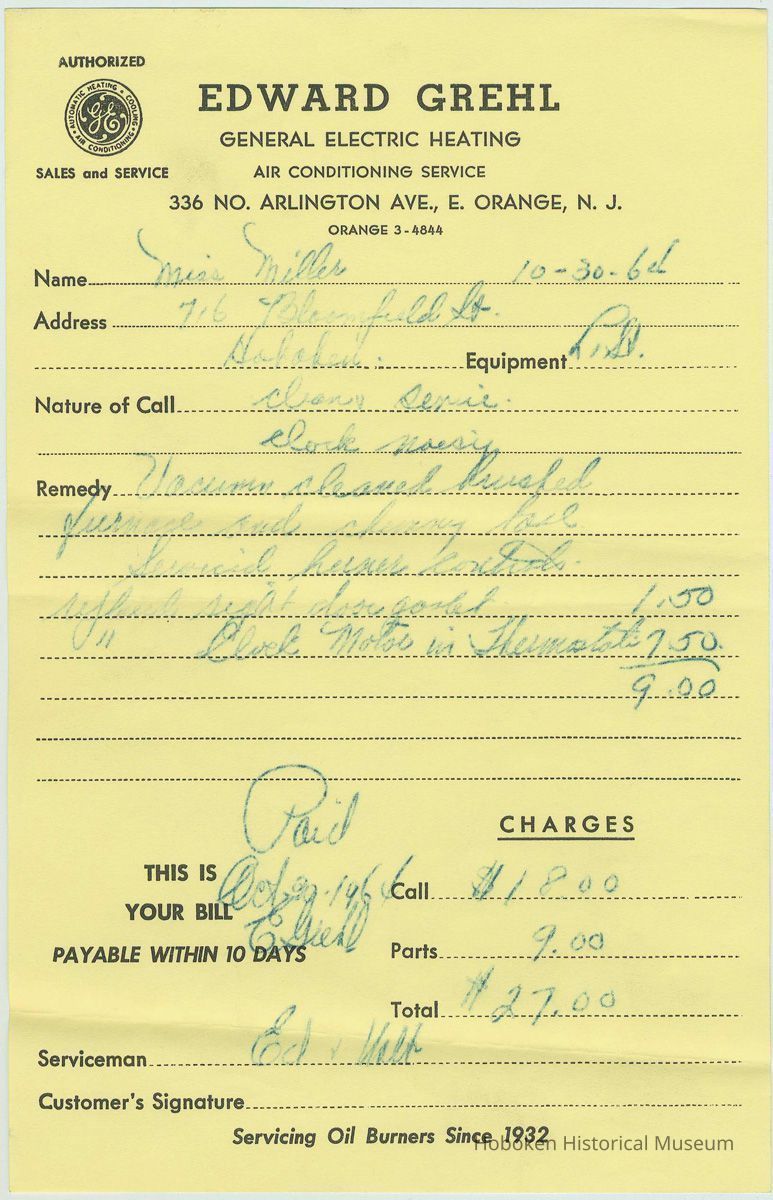 AUTHORIZED
AUTOMATIC HEATING • COOLING • AIR CONDITIONING
GE
SALES and SERVICE
EDWARD GREHL
GENERAL ELECTRIC HEATING
AIR CONDITIONING SERVICE
336 NO. ARLINGTON AVE., E. ORANGE, N. J.
ORANGE 3-4844
Name Miss Miller 10-30-64
Address 716 Bloomfield St.
Hoboken. Equipment
Nature of Call clean & servic.
clock noesiy
Remedy Vacumn cleaned brushed
furnace and chimny base
Serviced burner controls.
right door 1.50
" Clock Motor in Thermostate 7.50
9.00
Paid
Oct 30-1964
E Grehl
THIS IS
YOUR BILL
PAYABLE WITHIN 10 DAYS
CHARGES
Call $18.00
Parts 9.00
Total $27.00
Serviceman Ed & Walt
Customer's Signature
Servicing Oil Burners Since 1932
Hoboken Historical Museum